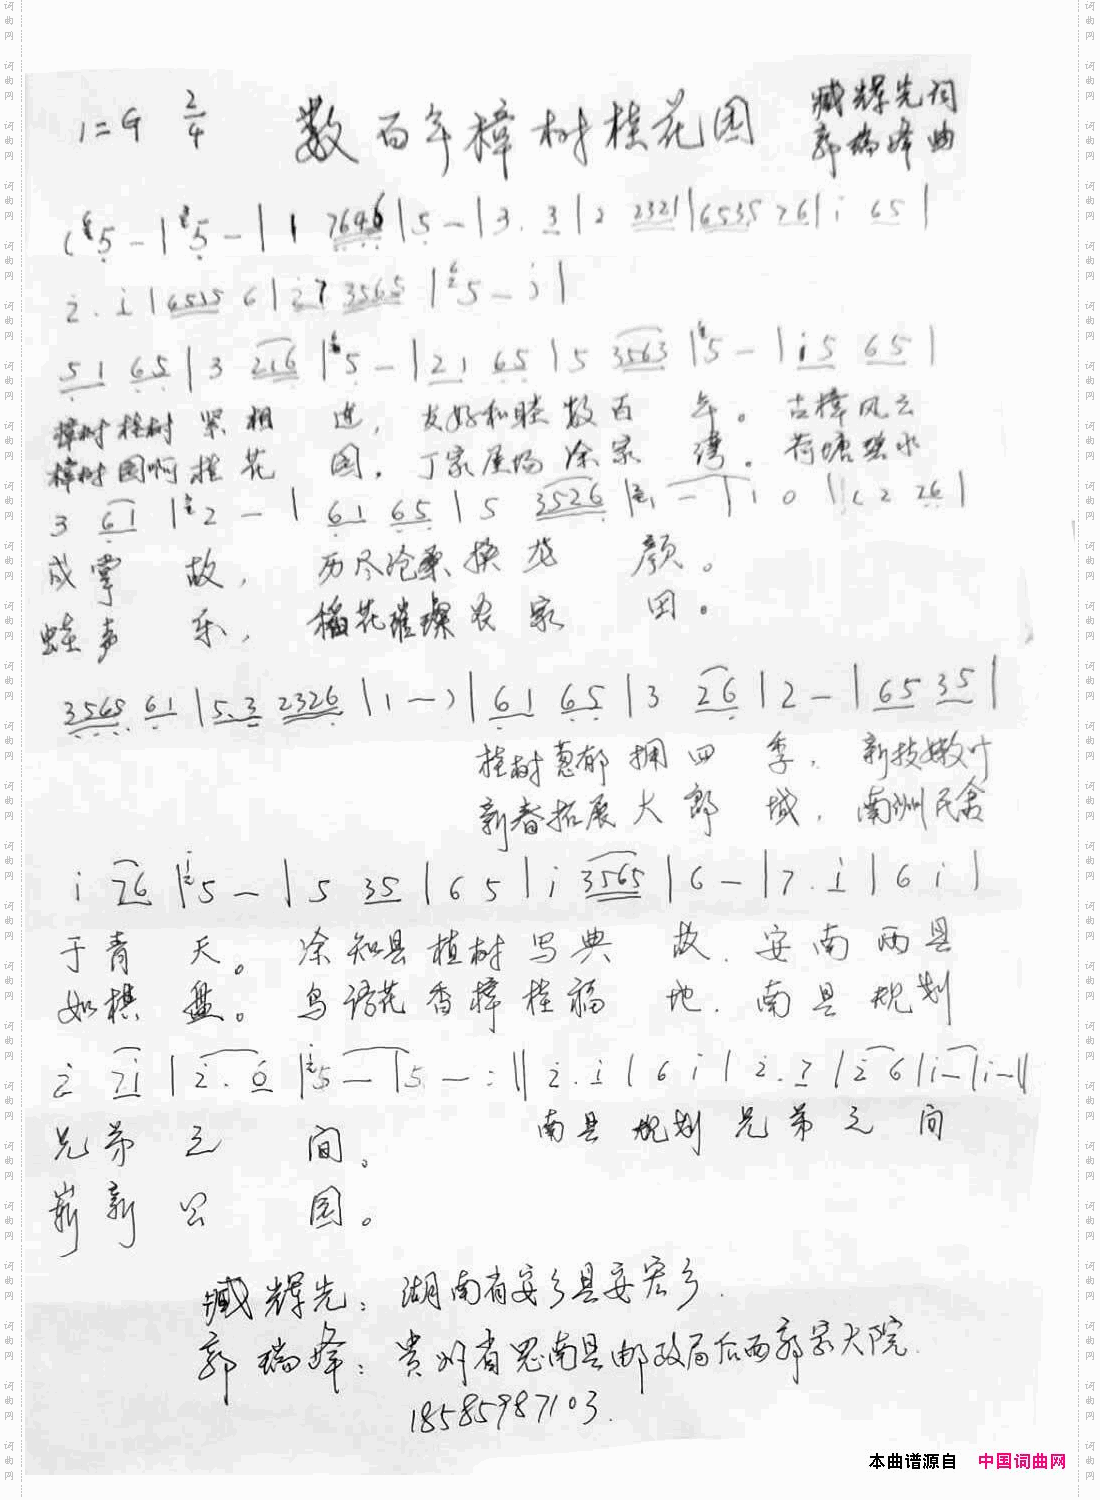 1=G 2/4 数百年樟树桂花园 臧辉先词
郭瑞峰曲
(5 - | 5 - | 1 7646 | 5 - | 3. 3 | 2 2321 | 6535 26 | i 65 |
2. i | 6535 6 | 27 3565 | 5 - i |
51 65 | 3 216 | 5 - | 21 65 | 5 3563 | 5 - | i5 65 |
樟树桂树 紧相 连, 友好和睦数百 年。 古樟风云
樟树园啊桂花 园, 丁家屋场涂家 湾。 荷塘水
3 61 | 2 - | 61 65 | 5 3526 | 1 - | 1 0 | (2 26 |
成掌 故, 历尽沧桑换龙 颜。
蛙声 乐, 稻花璀璨农家 田。
3565 61 | 5.3 2326 | 1 - ) | 61 65 | 3 26 | 2 - | 65 35 |
桂树葱郁拥四 季, 新枝嫩叶
新春拓展大郎 城, 南洲民舍
i 26 | 5 - | 5 35 | 6 5 | i 3565 | 6 - | 7. i | 6 i |
于青 天。 涂知县植树写典 故, 安南两县
如棋 盘。 鸟语花香樟桂福 地, 南县规划
2 7i | 2. 6 | 5 - | 5 - :|| 2. i | 6 i | 2. 7 | 26 | i - | i - ||
兄弟之 间。 南县规划兄弟之间
崭新公 园。
臧辉先: 湖南省安乡县安宏乡.
郭瑞峰: 贵州省思南县邮政局后西郭家大院.
18585987103.
本曲谱源自 中国词曲网
词曲网